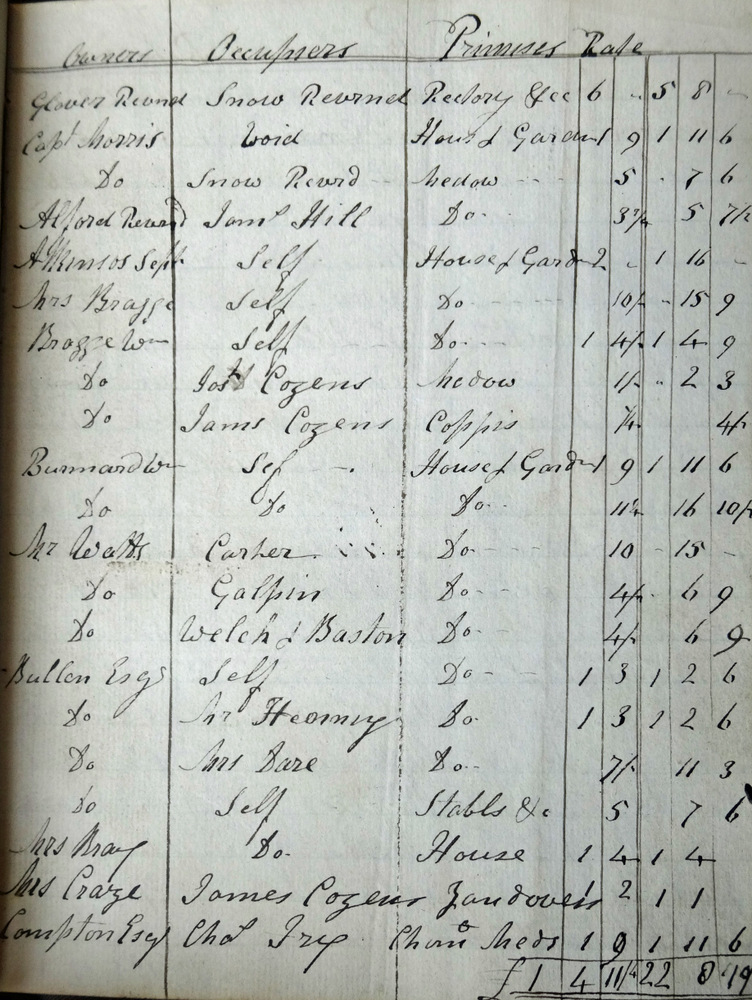 Owners Occupiers Premises Rate
Glover Revnd Snow Revrnd Rectory &cc 6 - 5 8 -
Capt Morris Void House & Gardn 1 9 1 11 6
Do Snow Revrd Medow 5 - 7 6
Alford Revrd Jams Hill Do 3¾ 5 7½
Self House & Gard 2 - 1 16 -
Mrs Bragge Self Do 10½ - 15 9
Bragge Wm Self Do 1 4½ 1 4 9
Do Cozens Medow 1½ - 2 3
Do Jams Cozens Coppis ¼ 4½
Burnnard Wm Self House & Gard 1 9 1 11 6
Do Do Do 11¼ 16 10½
Mr Watts Carter Do 10 - 15 -
Do Galpin Do 4½ - 6 9
Do Welch & Baston Do 4½ 6 9
Bullen Esqr Self Do 1 3 1 2 6
Do Mr Do 1 3 1 2 6
Do Mrs Dare Do 7½ 11 3
Do Self Stabls &c 5 7 6
Mrs Bray Do House 1 4 1 4
Mrs Craze James Cozens 1 2 1 1
Compton Esqr Chas Fry Meds 1 9 1 11 6
£ 1 4 11¼ 22 8